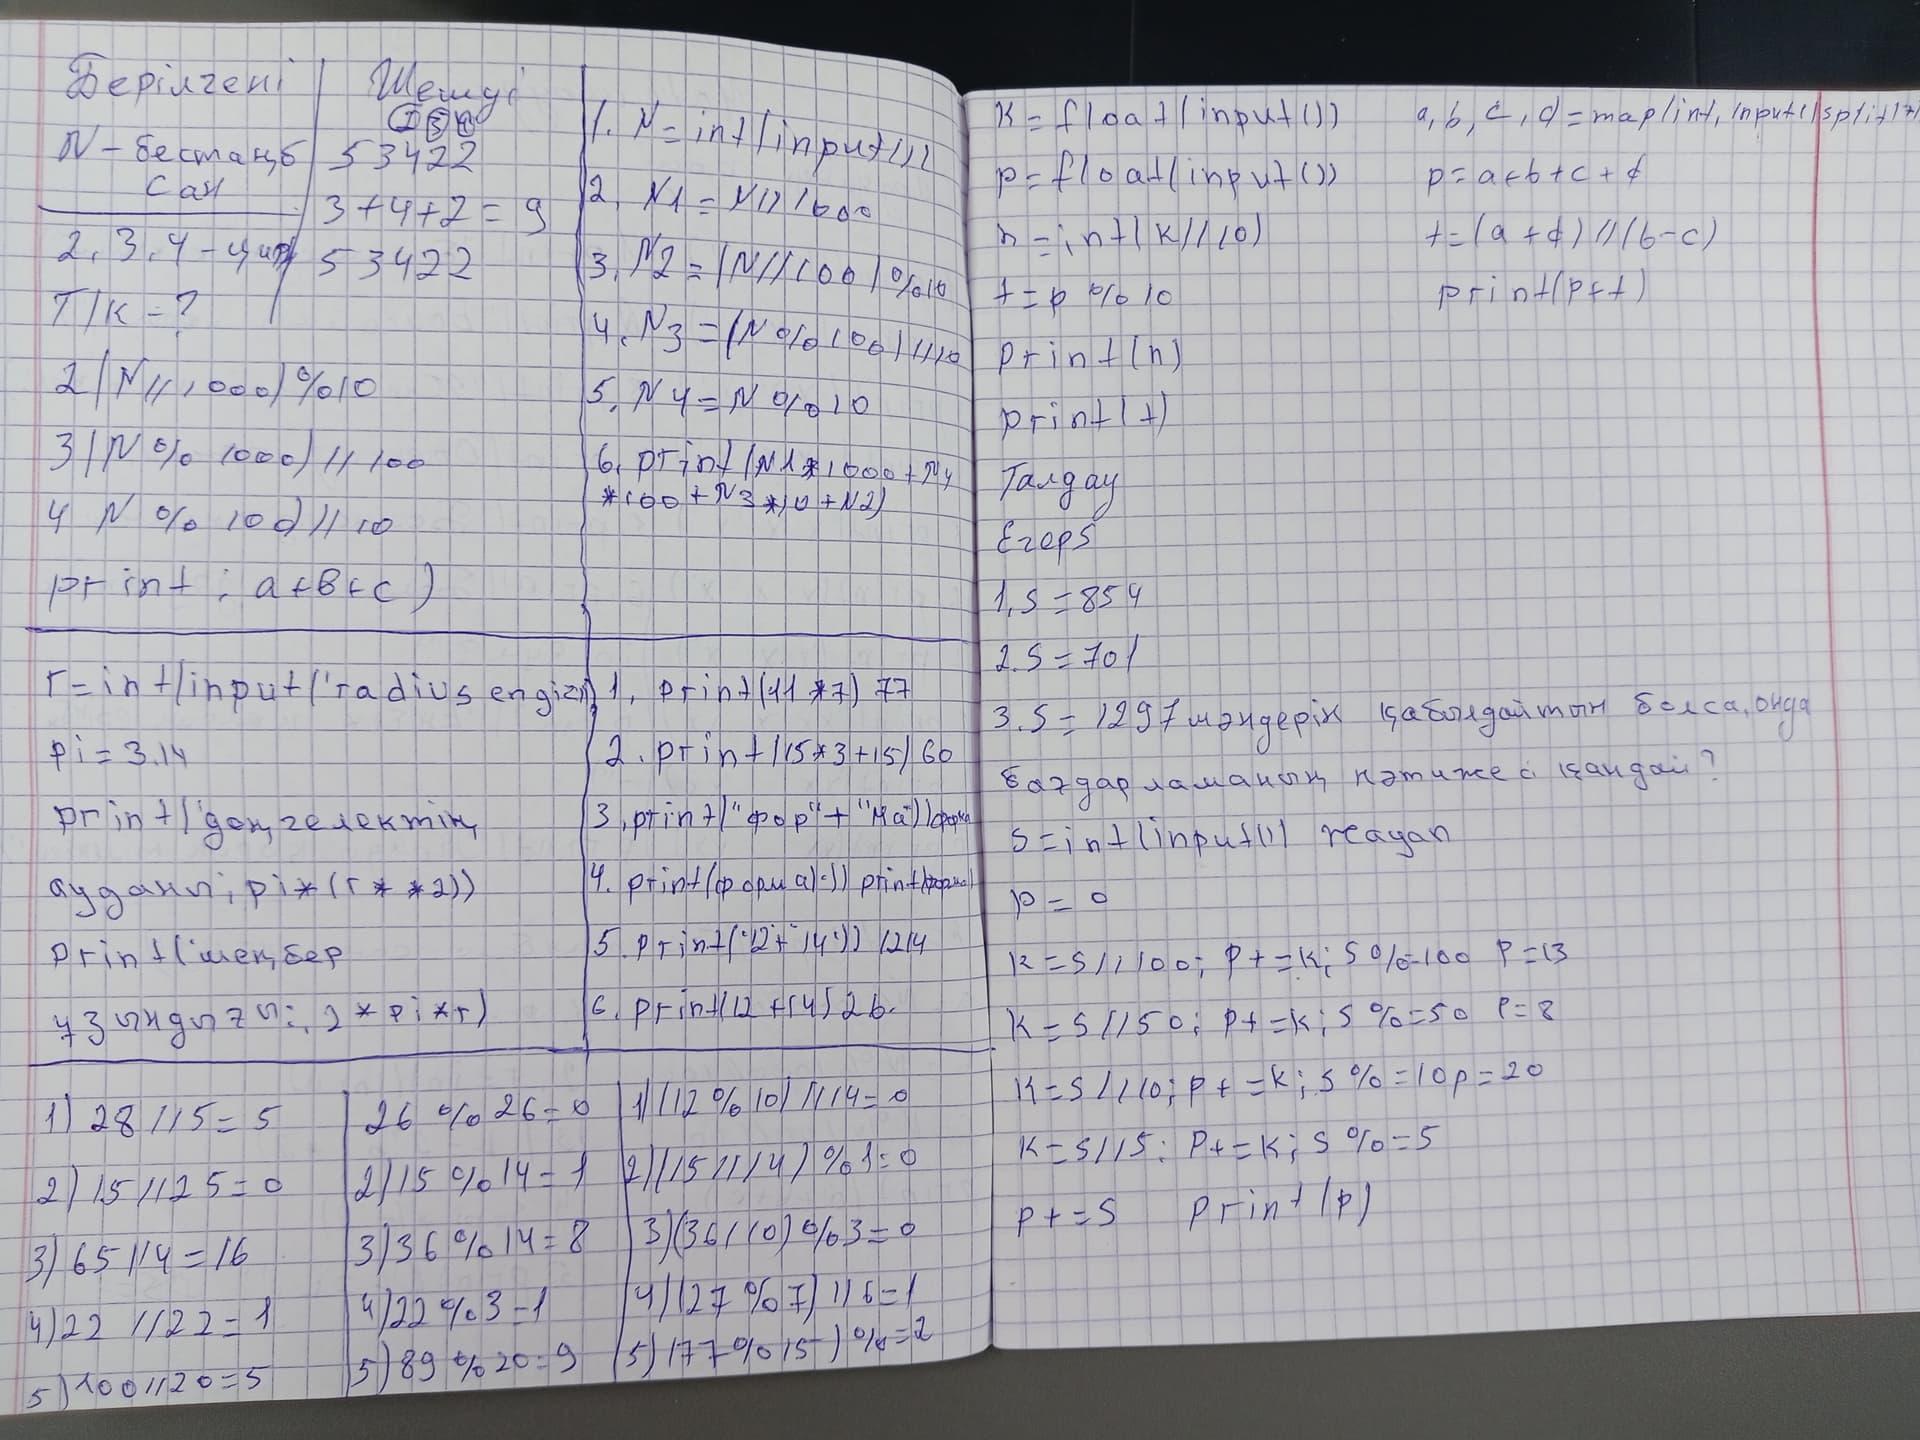 Берілгені
N - бестаңб
сан
2, 3, 4 - цифр
T/K = ?
2 (N // 1000) % 10
3 (N % 1000) // 100
4 N % 100) // 10
print : a+b+c)
Шешуі
53422
3+4+2=9
53422
1. N=int(input())
2. N1=N//1000
3. N2=(N//100)%10
4. N3=(N%100)//10
5. N4=N%10
6. print(N1*1000+N4
*100+N3*10+N2)
r=int(input('radius engizi)
pi=3.14
print('дөңгелектің
ауданы; pi*(r**2))
print('шеңбер
ұзындығы:, 2*pi*r)
1, print(11*7) 77
2. print(15*3+15) 60
3, print("фор"+"ма")) форма
4. print(форма):)) print(форма)
5. print('12+'14')) 1214
6. print(12+14) 26.
1) 28//5=5
2) 15//25=0
3) 65//4=16
4) 22//22=1
5) 100//20=5
26%26=0
2) 15%14=1
3) 36%14=8
4) 22%3=1
5) 89%20=9
1) (12%10)//14=0
2) (15//14)%1=0
3) (36//10)%3=0
4) (27%7)//6=1
5) 177%15)%=2
K=float(input())
p=float(input())
n=int(K//10)
t=p%10
print(n)
print(t)
Талдау
Егер S
1, S=854
2. S=701
3. S=1297 мәндерін қабылдайтын болса, онда
бағдарламаның нәтижесі қандай?
S=int(input()) жауап
p=0
K=S//100; p+=K; S%=100 P=13
K=S//50; p+=K; S%=50 P=8
K=S//10; p+=K; S%=10 p=20
K=S//5; P+=K; S%=5
p+=S print(p)
a, b, c, d=map(int, input()split(
p=a+b+c+d
t=(a+d)//(b-c)
print(p+t)